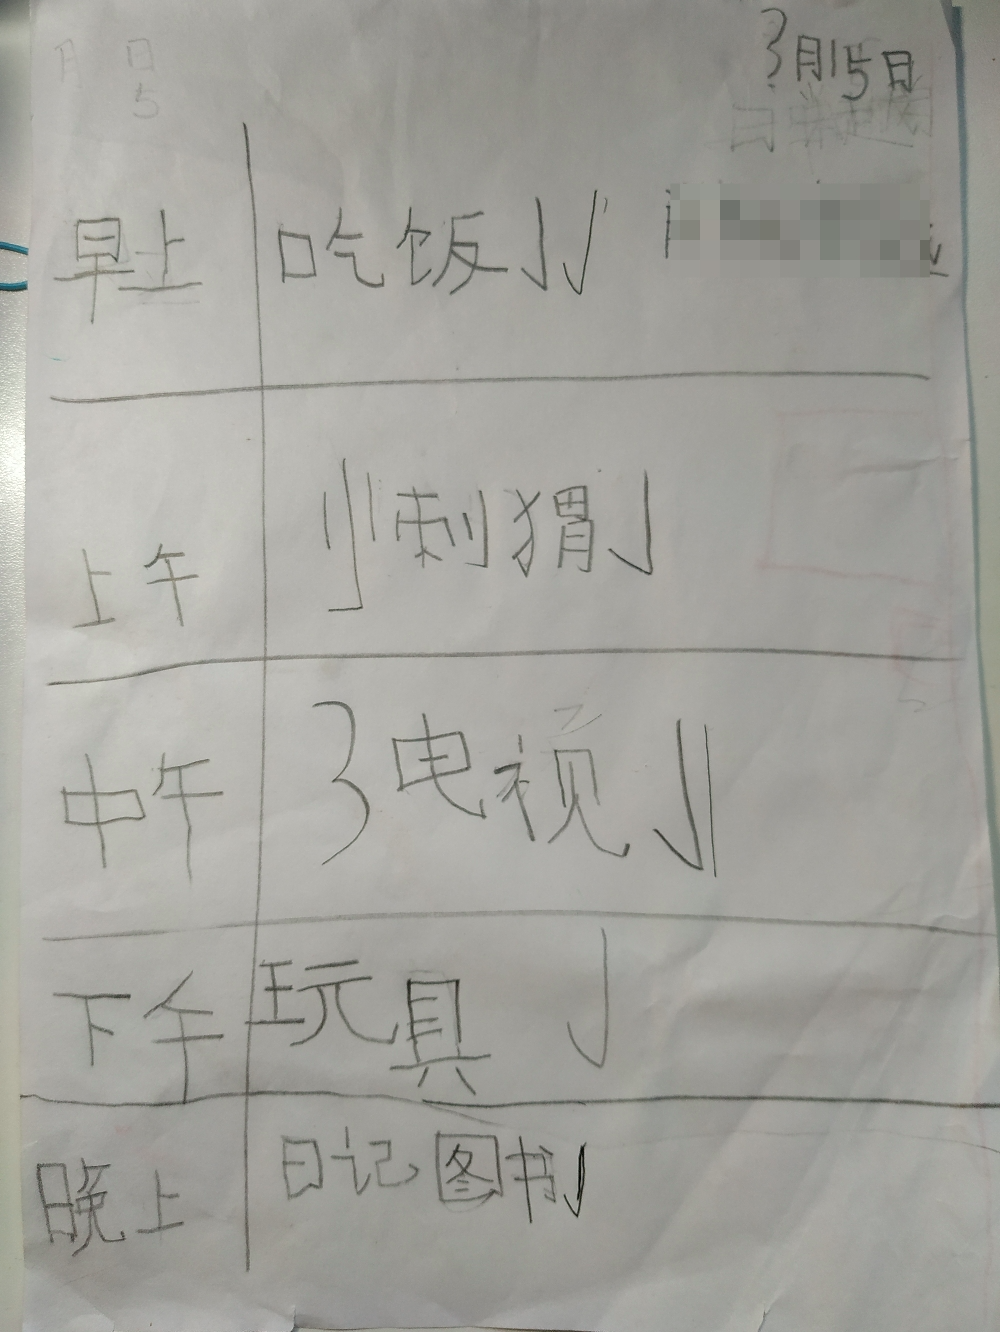 3月15日
早上 吃饭
上午 刺猬
中午 3电视
下午 玩具
晚上 日记 图书